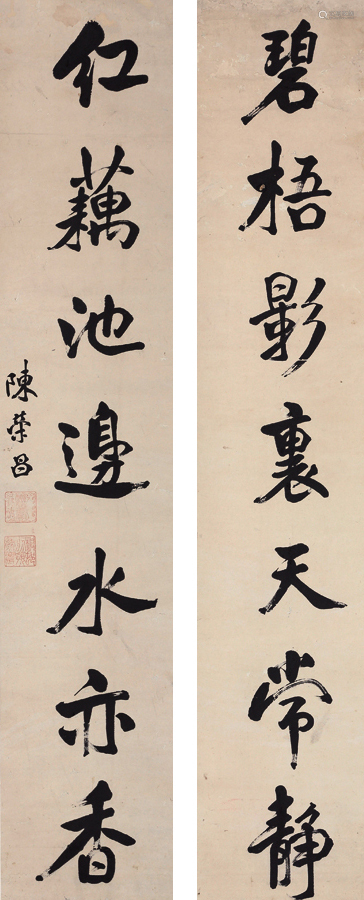 碧梧影裏天常靜
紅藕池邊水亦香
陳榮昌